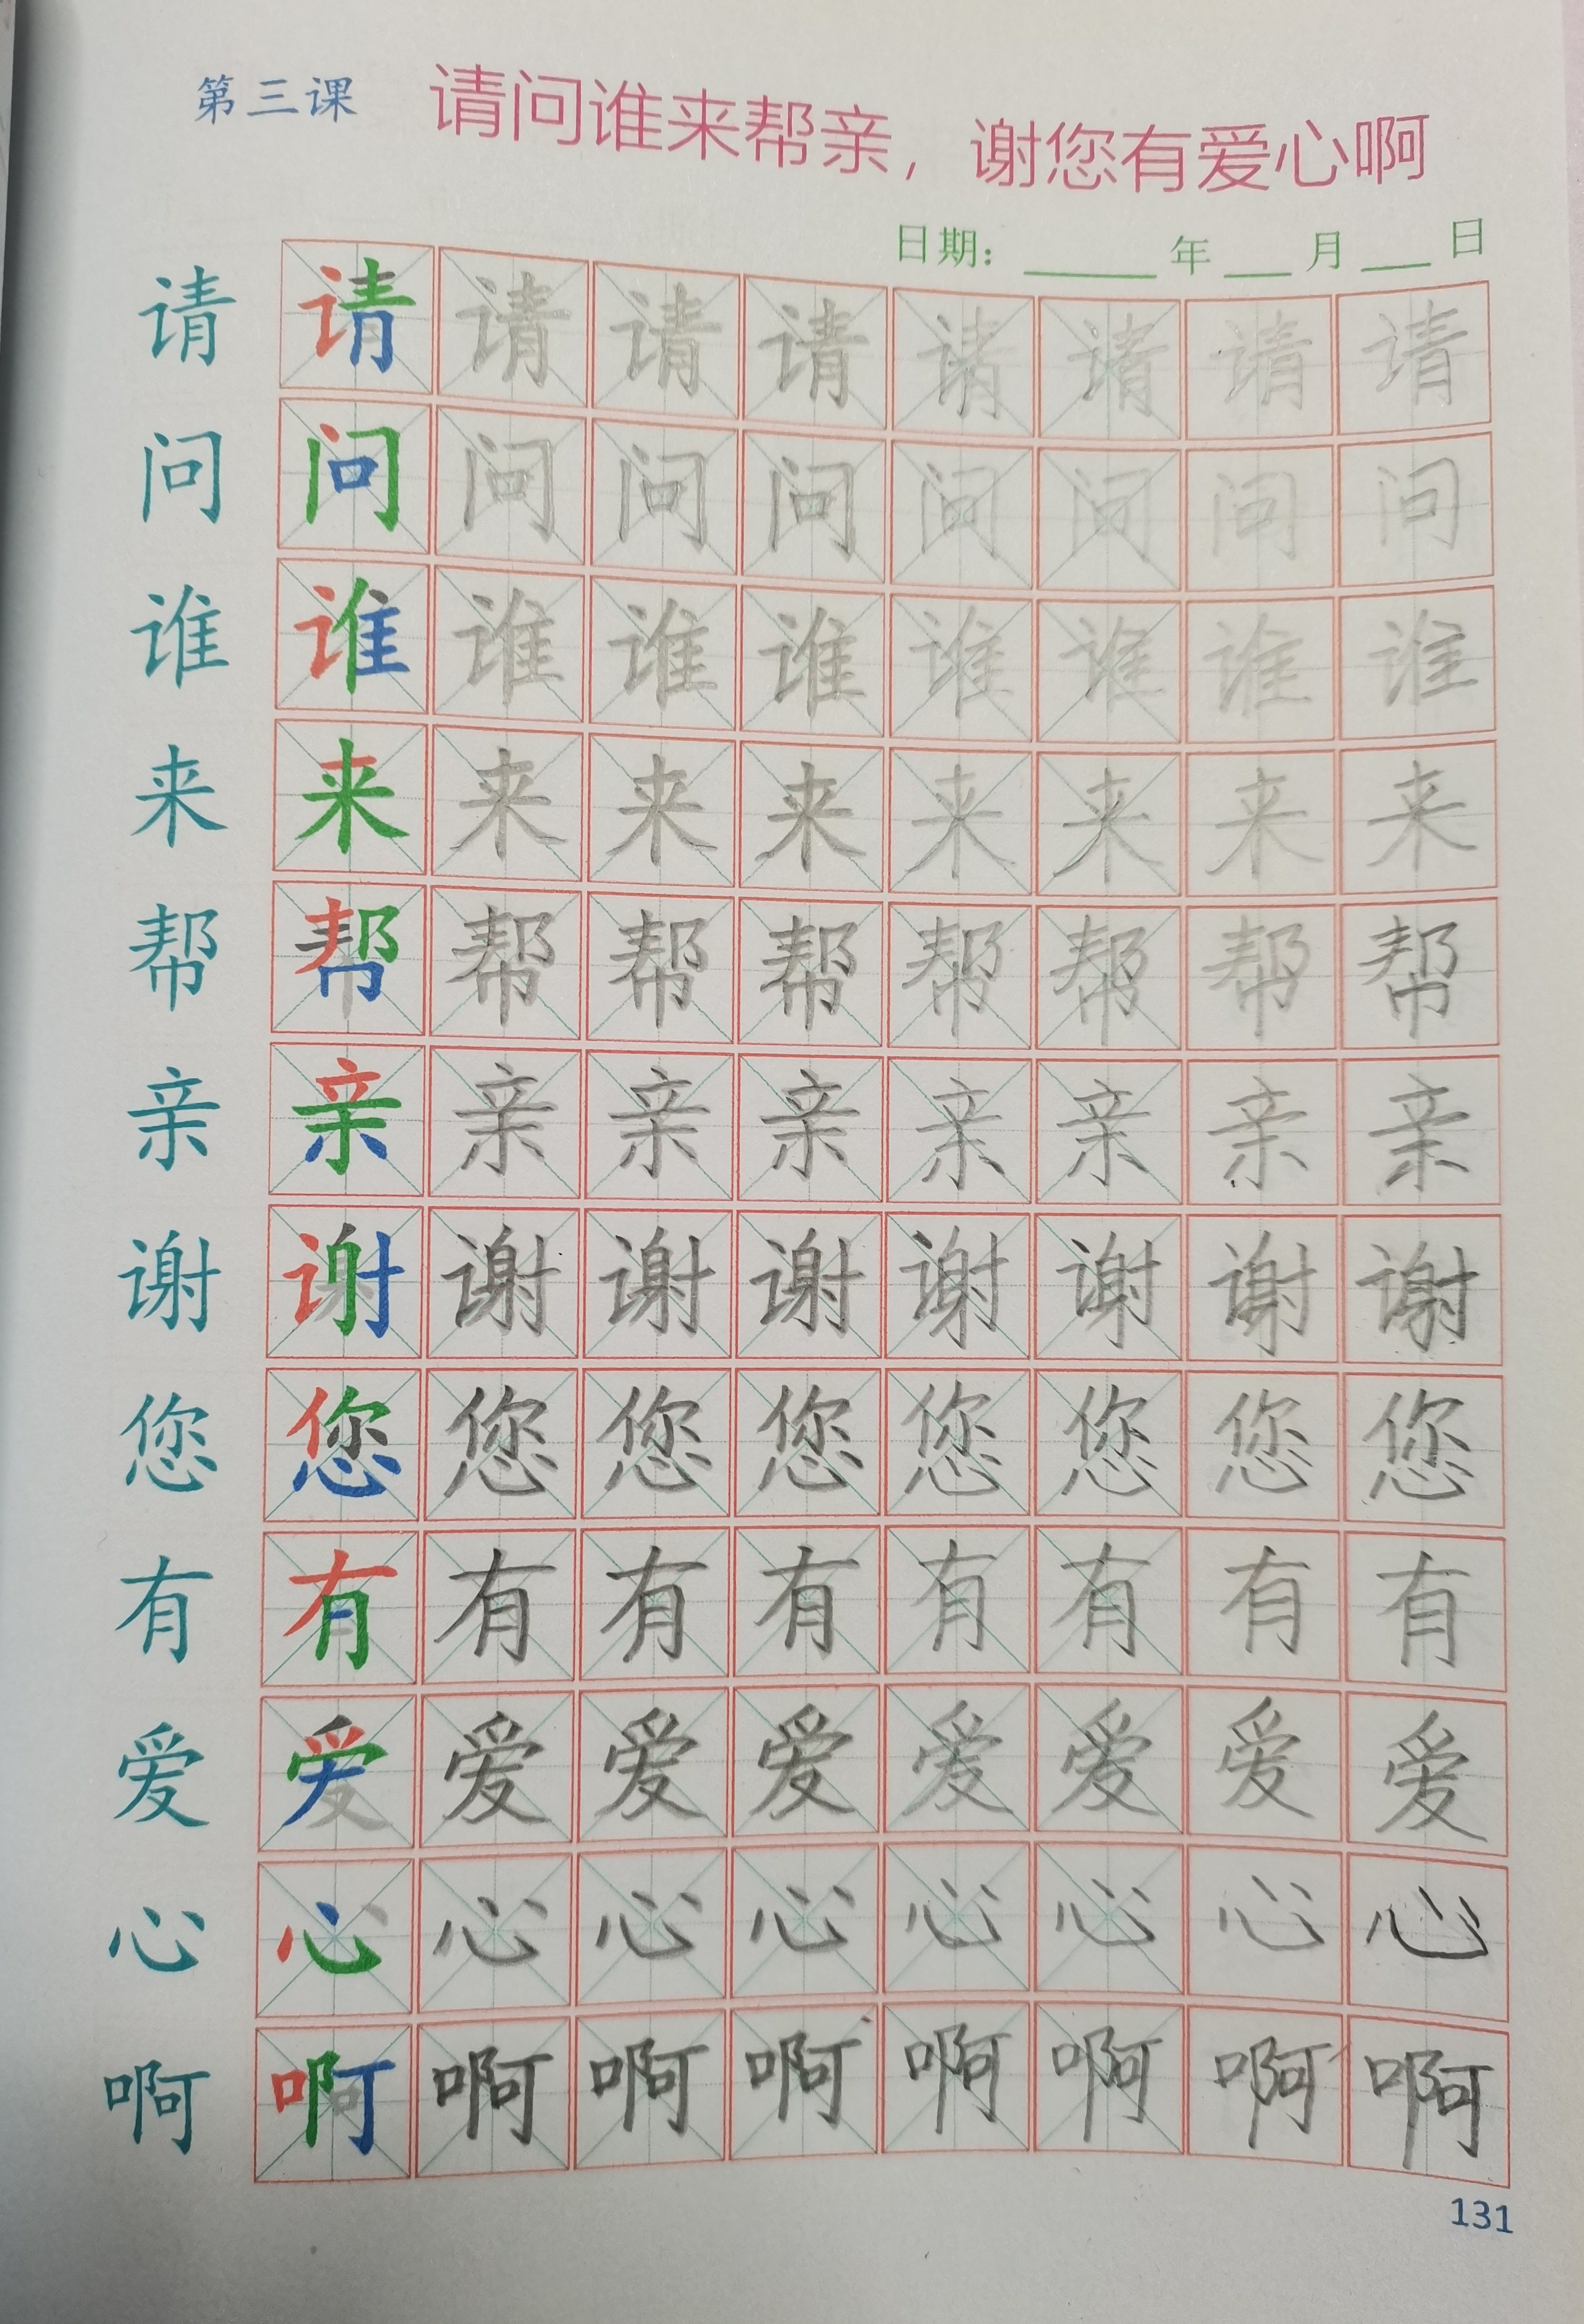 第三课 请问谁来帮亲，谢您有爱心啊
日期：______年___月___日
请 请 请 请 请 请 请 请 请
问 问 问 问 问 问 问 问 问
谁 谁 谁 谁 谁 谁 谁 谁 谁
来 来 来 来 来 来 来 来 来
帮 帮 帮 帮 帮 帮 帮 帮 帮
亲 亲 亲 亲 亲 亲 亲 亲 亲
谢 谢 谢 谢 谢 谢 谢 谢 谢
您 您 您 您 您 您 您 您 您
有 有 有 有 有 有 有 有 有
爱 爱 爱 爱 爱 爱 爱 爱 爱
心 心 心 心 心 心 心 心 心
啊 啊 啊 啊 啊 啊 啊 啊 啊
131